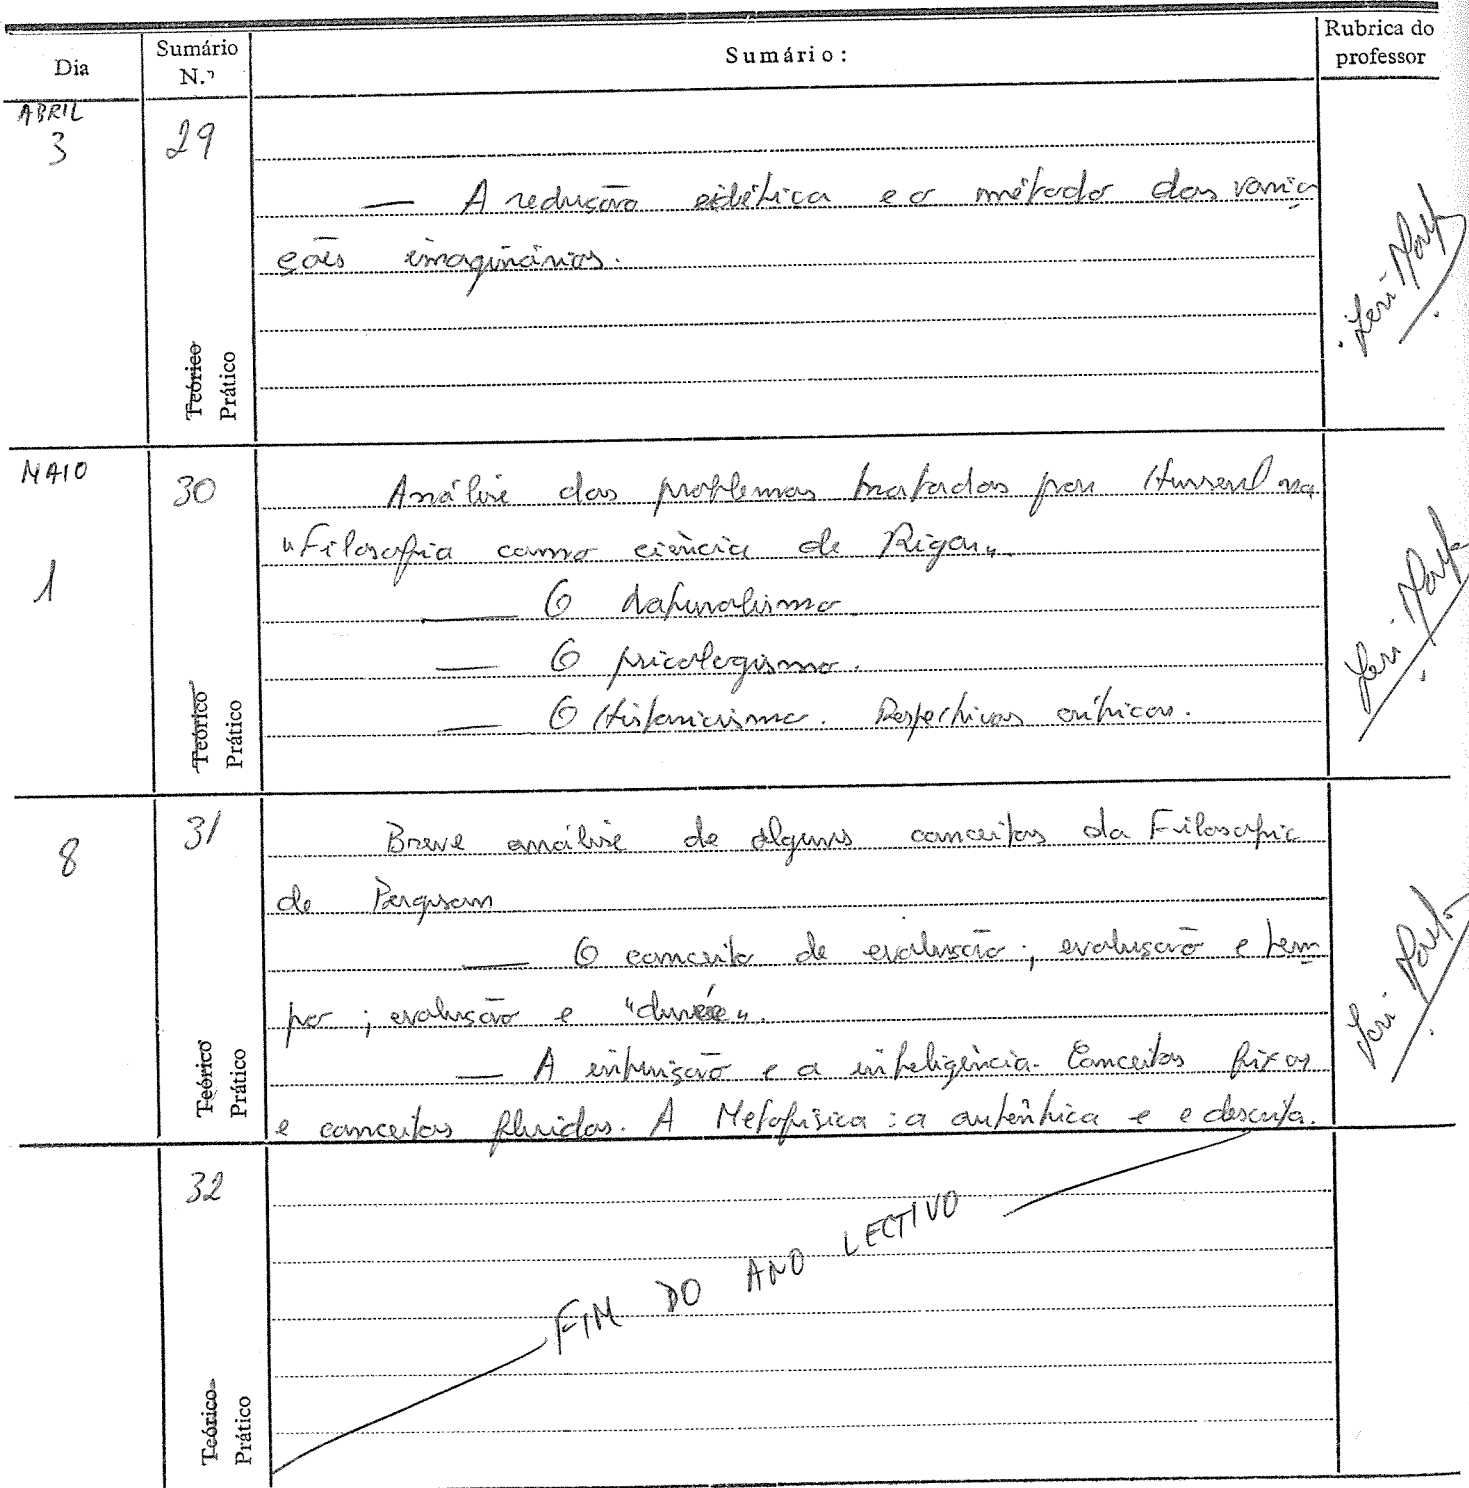 Dia
Sumário
N.º
Sumário:
Rubrica do
professor
ABRIL
3
29
— A redução eidética e o método das varia
ções imaginárias.
Teórico
Prático
MAIO
1
30
Análise dos problemas tratados por Husserl na
"Filosofia como ciência de Rigor"
— O naturalismo.
— O psicologismo.
— O Historicismo. Respectivas críticas.
Teórico
Prático
8
31
Breve análise de alguns conceitos da Filosofia
de Bergson
— O conceito de evolução; evolução e tem
po; evolução e "durée".
— A intuição e a inteligência. Conceitos fixos
e conceitos fluidos. A Metafísica: a autêntica e
Teórico
Prático
32
FIM DO ANO LECTIVO
Teórico
Prático